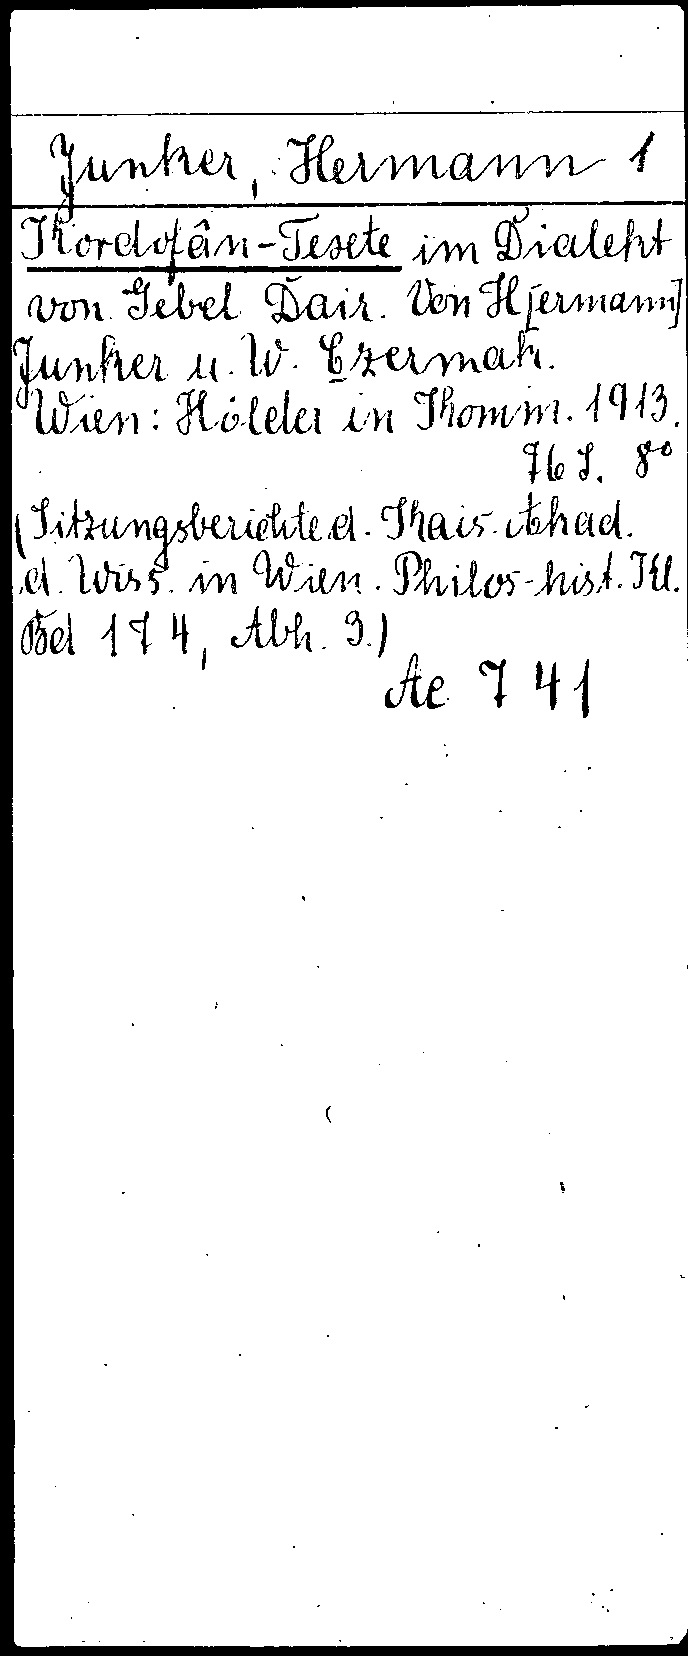 Junker, Hermann 1
Kordofân-Texte im Dialekt
von Gebel Dair. Von H[ermann]
Junker u. W. Czermak.
Wien: Hölder in Komm. 1913.
76 S. 8°
(Sitzungsberichte d. Kais. Akad.
d. Wiss. in Wien. Philos-hist. Kl.
Bd 174, Abh. 3.)
Ae 741